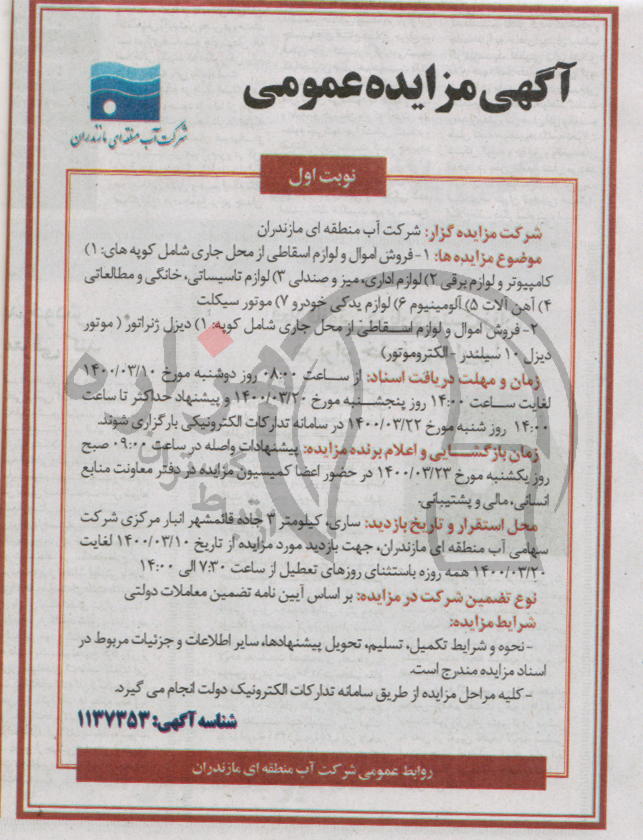 آگهی مزایده عمومی
شرکت آب منطقه ای مازندران
نوبت اول
شرکت مزایده گزار: شرکت آب منطقه ای مازندران
موضوع مزایده ها: ۱- فروش اموال و لوازم اسقاطی از محل جاری شامل کوپه های: ۱)
کامپیوتر و لوازم برقی ۲) لوازم اداری، میز و صندلی ۳) لوازم تاسیساتی، خانگی و مطالعاتی
۴) آهن آلات ۵) آلومینیوم ۶) لوازم یدکی خودرو ۷) موتور سیکلت
۲- فروش اموال و لوازم اسقاطی از محل جاری شامل کوپه: ۱) دیزل ژنراتور ( موتور
دیزل ۱۰ سیلندر - الکتروموتور)
زمان و مهلت دریافت اسناد: از ساعت ۰۸:۰۰ روز دوشنبه مورخ ۱۴۰۰/۰۳/۱۰
لغایت ساعت ۱۴:۰۰ روز پنجشنبه مورخ ۱۴۰۰/۰۳/۲۰ و پیشنهاد حداکثر تا ساعت
۱۴:۰۰ روز شنبه مورخ ۱۴۰۰/۰۳/۲۲ در سامانه تدارکات الکترونیکی بارگزاری شوند.
زمان بازگشایی و اعلام برنده مزایده: پیشنهادات واصله در ساعت ۰۹:۰۰ صبح
روز یکشنبه مورخ ۱۴۰۰/۰۳/۲۳ در حضور اعضا کمیسیون مزایده در دفتر معاونت منابع
انسانی، مالی و پشتیبانی.
محل استقرار و تاریخ بازدید: ساری، کیلومتر ۳ جاده قائمشهر انبار مرکزی شرکت
سهامی آب منطقه ای مازندران، جهت بازدید مورد مزایده از تاریخ ۱۴۰۰/۰۳/۱۰ لغایت
۱۴۰۰/۰۳/۲۰ همه روزه باستثنای روزهای تعطیل از ساعت ۷:۳۰ الی ۱۴:۰۰
نوع تضمین شرکت در مزایده: بر اساس آیین نامه تضمین معاملات دولتی
شرایط مزایده:
- نحوه و شرایط تکمیل، تسلیم، تحویل پیشنهادها، سایر اطلاعات و جزئیات مربوط در
اسناد مزایده مندرج است.
- کلیه مراحل مزایده از طریق سامانه تدارکات الکترونیک دولت انجام می گیرد.
شناسه آگهی: ۱۱۳۷۳۵۳
روابط عمومی شرکت آب منطقه ای مازندران